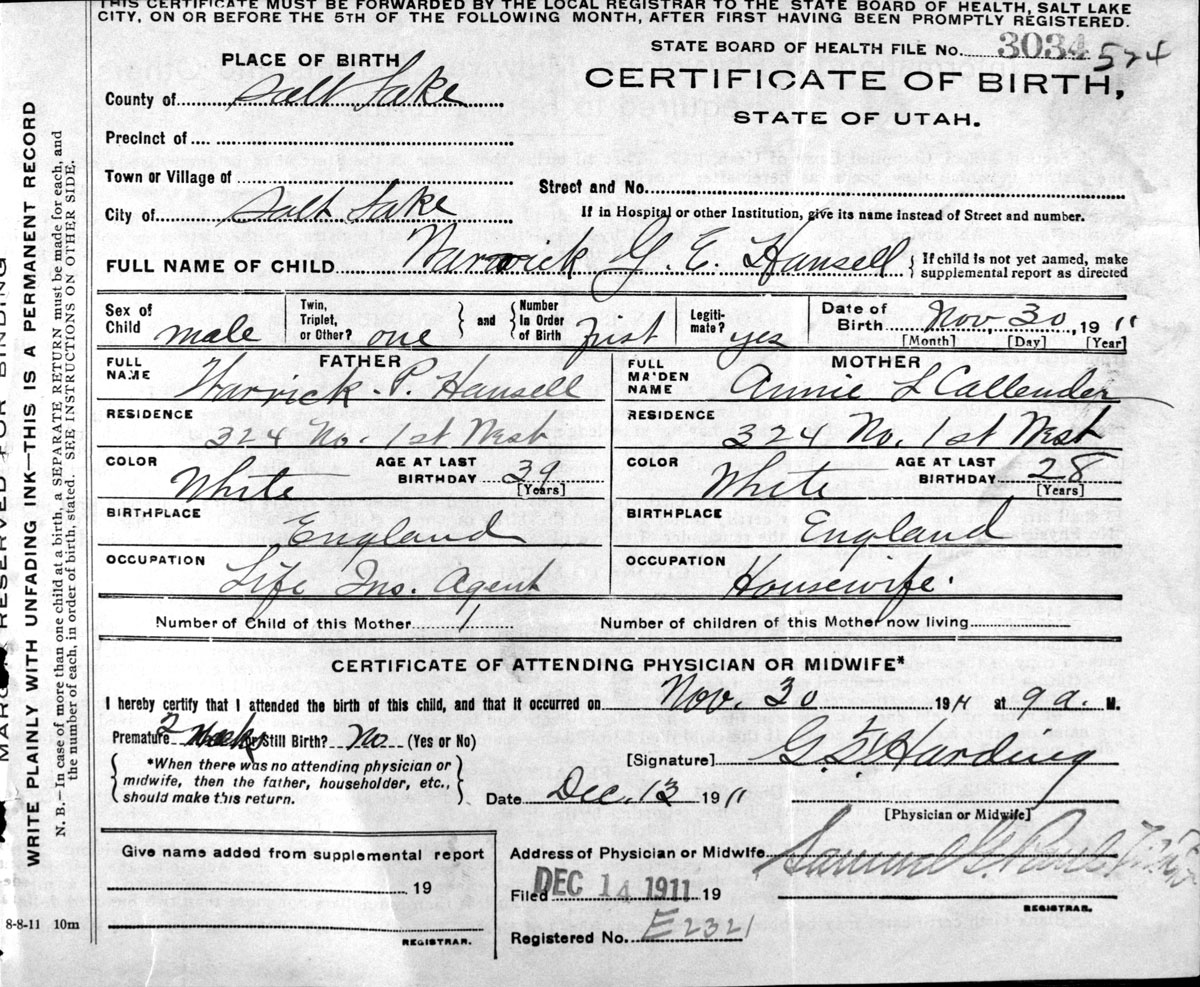 THIS CERTIFICATE MUST BE FORWARDED BY THE LOCAL REGISTRAR TO THE STATE BOARD OF HEALTH, SALT LAKE
CITY, ON OR BEFORE THE 5TH OF THE FOLLOWING MONTH, AFTER FIRST HAVING BEEN PROMPTLY REGISTERED.
STATE BOARD OF HEALTH FILE No. 3034 574
PLACE OF BIRTH
CERTIFICATE OF BIRTH,
STATE OF UTAH.
County of Salt Lake
Precinct of
Town or Village of
Street and No.
City of Salt Lake
If in Hospital or other Institution, give its name instead of Street and number.
FULL NAME OF CHILD Warwick G. E. Hansell { If child is not yet named, make
supplemental report as directed
Sex of Child male
Twin, Triplet, or Other? one
and
Number In Order of Birth first
Legiti-mate? yes
Date of Birth Nov. 30, 1911
[Month] [Day] [Year]
FATHER
FULL NAME Warrick P. Hansell
MOTHER
FULL MAIDEN NAME Annie L Callender
RESIDENCE
324 No. 1st West
RESIDENCE
324 No. 1st West
COLOR White AGE AT LAST BIRTHDAY 39
[Years]
COLOR White AGE AT LAST BIRTHDAY 28
[Years]
BIRTHPLACE
England
BIRTHPLACE
England
OCCUPATION
Life Ins. Agent
OCCUPATION
Housewife.
Number of Child of this Mother 1
Number of children of this Mother now living
CERTIFICATE OF ATTENDING PHYSICIAN OR MIDWIFE*
I hereby certify that I attended the birth of this child, and that it occurred on Nov. 30 1911 at 9 a. M.
Premature 2 weeks Still Birth? No (Yes or No)
*When there was no attending physician or
midwife, then the father, householder, etc.,
should make this return.
[Signature] G. F. Harding
Date Dec. 13 1911
[Physician or Midwife]
Give name added from supplemental report
19
REGISTRAR.
Address of Physician or Midwife
Samuel G. Paul
Filed DEC 14 1911 19
REGISTRAR.
Registered No. E2321
8-8-11 10m
MARGIN RESERVED FOR BINDING
WRITE PLAINLY WITH UNFADING INK—THIS IS A PERMANENT RECORD
N. B.—In case of more than one child at a birth, a SEPARATE RETURN must be made for each, and
the number of each, in order of birth, stated. SEE INSTRUCTIONS ON OTHER SIDE.